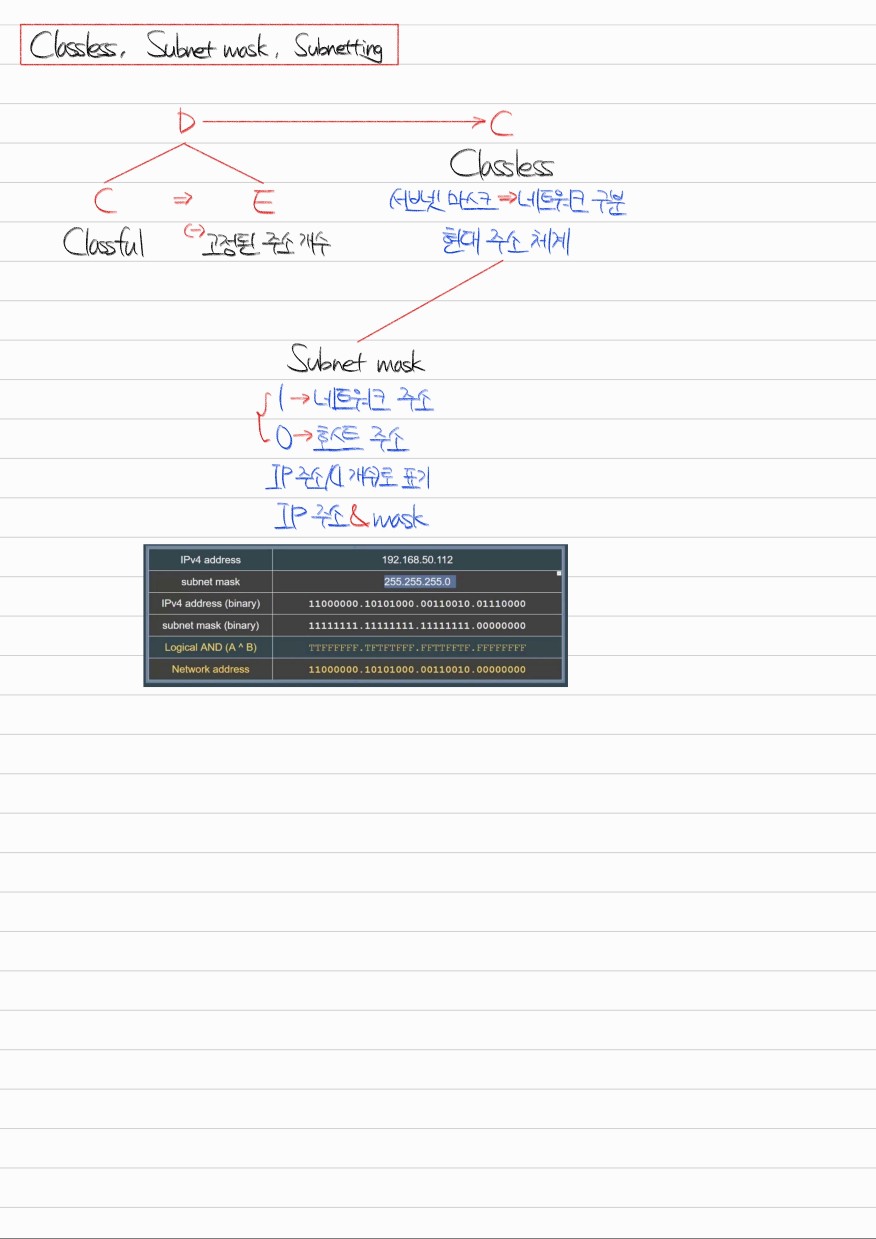 Classless, Subnet mask, Subnetting
D → C
Classless
C ⇒ E
서브넷 마스크 ⇒ 네트워크 구분
Classful (-) 고정된 주소 개수
현대 주소 체계
Subnet mask
1 → 네트워크 주소
0 → 호스트 주소
IP 주소/(1 개수)로 표기
IP 주소 & mask
IPv4 address 192.168.50.112
subnet mask 255.255.255.0
IPv4 address (binary) 11000000.10101000.00110010.01110000
subnet mask (binary) 11111111.11111111.11111111.00000000
Logical AND (A ^ B) TTFFFFFF.TFTFTFFF.FFTTFFTF.FFFFFFFF
Network address 11000000.10101000.00110010.00000000